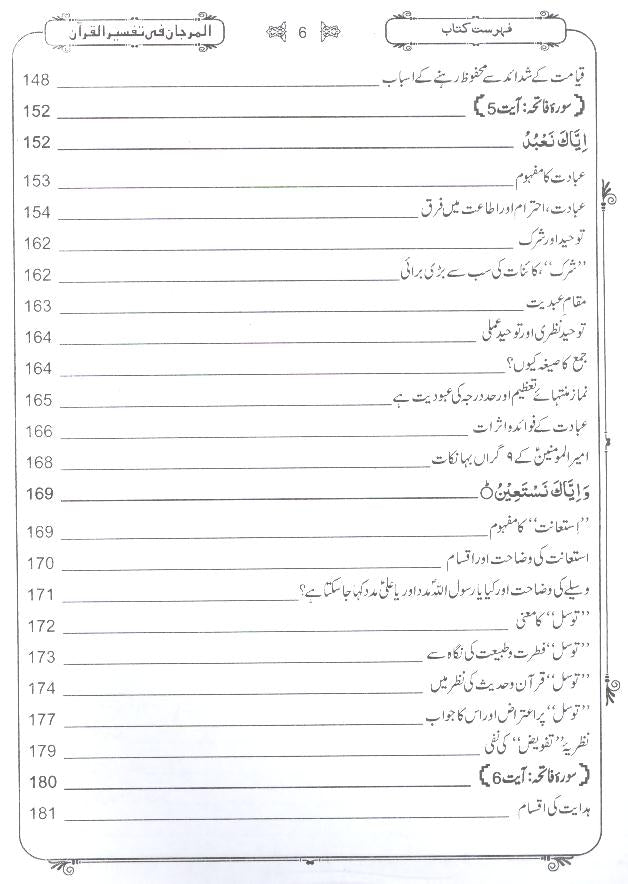 فہرست کتاب
6
المرجان فی تفسیر القرآن
قیامت کے شدائد سے محفوظ رہنے کے اسباب 148
﴿سورۂ فاتحہ: آیت 5﴾ 152
اِیَّاکَ نَعْبُدُ 152
عبادت کا مفہوم 153
عبادت، احترام اور اطاعت میں فرق 154
توحید اور شرک 162
’’شرک‘‘، کائنات کی سب سے بڑی برائی 162
مقام عبدیت 163
توحید نظری اور توحید عملی 164
جمع کا صیغہ کیوں؟ 164
نماز منتہائے تعظیم اور حد درجہ کی عبودیت ہے 165
عبادت کے فوائد و اثرات 166
امیر المومنینؑ کے ۹ گراں بہا نکات 168
وَاِیَّاکَ نَسْتَعِیْنُ 169
’’استعانت‘‘ کا مفہوم 169
استعانت کی وضاحت اور اقسام 170
وسیلے کی وضاحت اور کیا یا رسول اللہؐ مدد اور یا علیؑ مدد کہا جا سکتا ہے؟ 171
’’توسل‘‘ کا معنی 172
’’توسل‘‘ فطرت و طبیعت کی نگاہ سے 173
’’توسل‘‘ قرآن و حدیث کی نظر میں 174
’’توسل‘‘ پر اعتراض اور اس کا جواب 177
نظریۂ ’’تفویض‘‘ کی نفی 179
﴿سورۂ فاتحہ: آیت 6﴾ 180
ہدایت کی اقسام 181